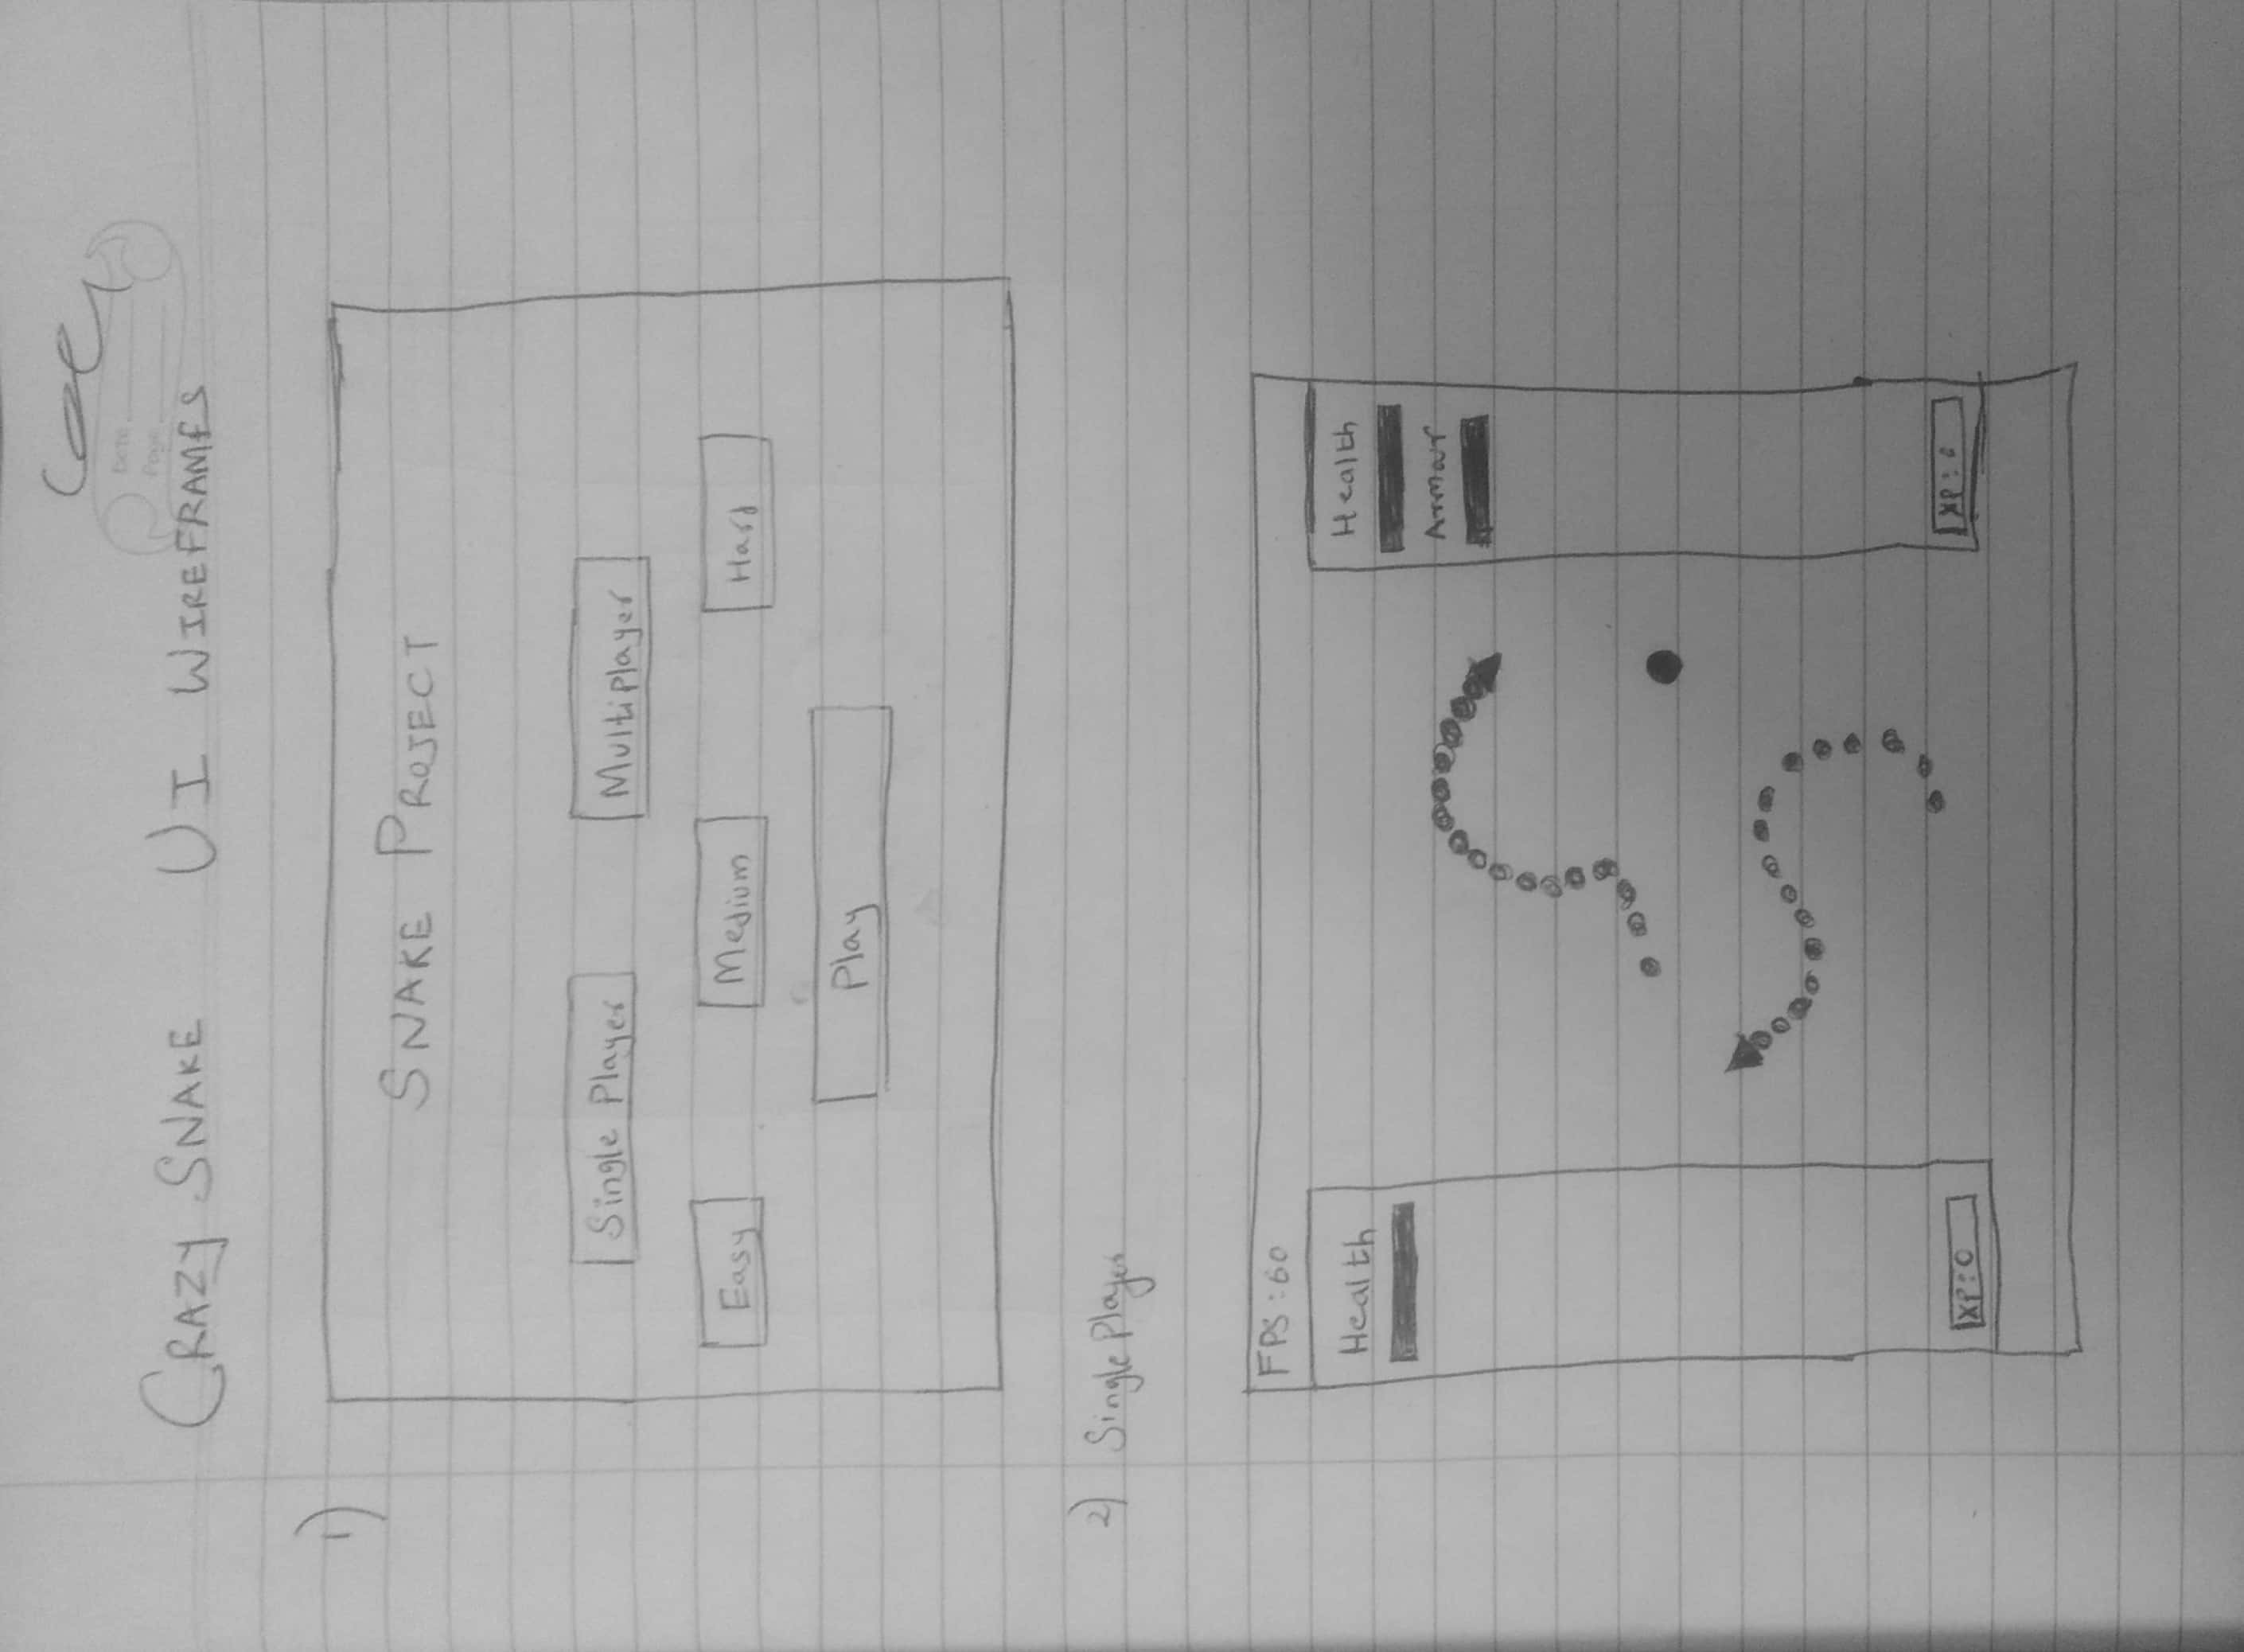 Date
Page
CRAZY SNAKE UI WIREFRAMES
1)
SNAKE PROJECT
Single Player Multiplayer
Easy Medium Hard
Play
2) Single Player
FPS:60
Health Health
Armor
XP:0 XP:0